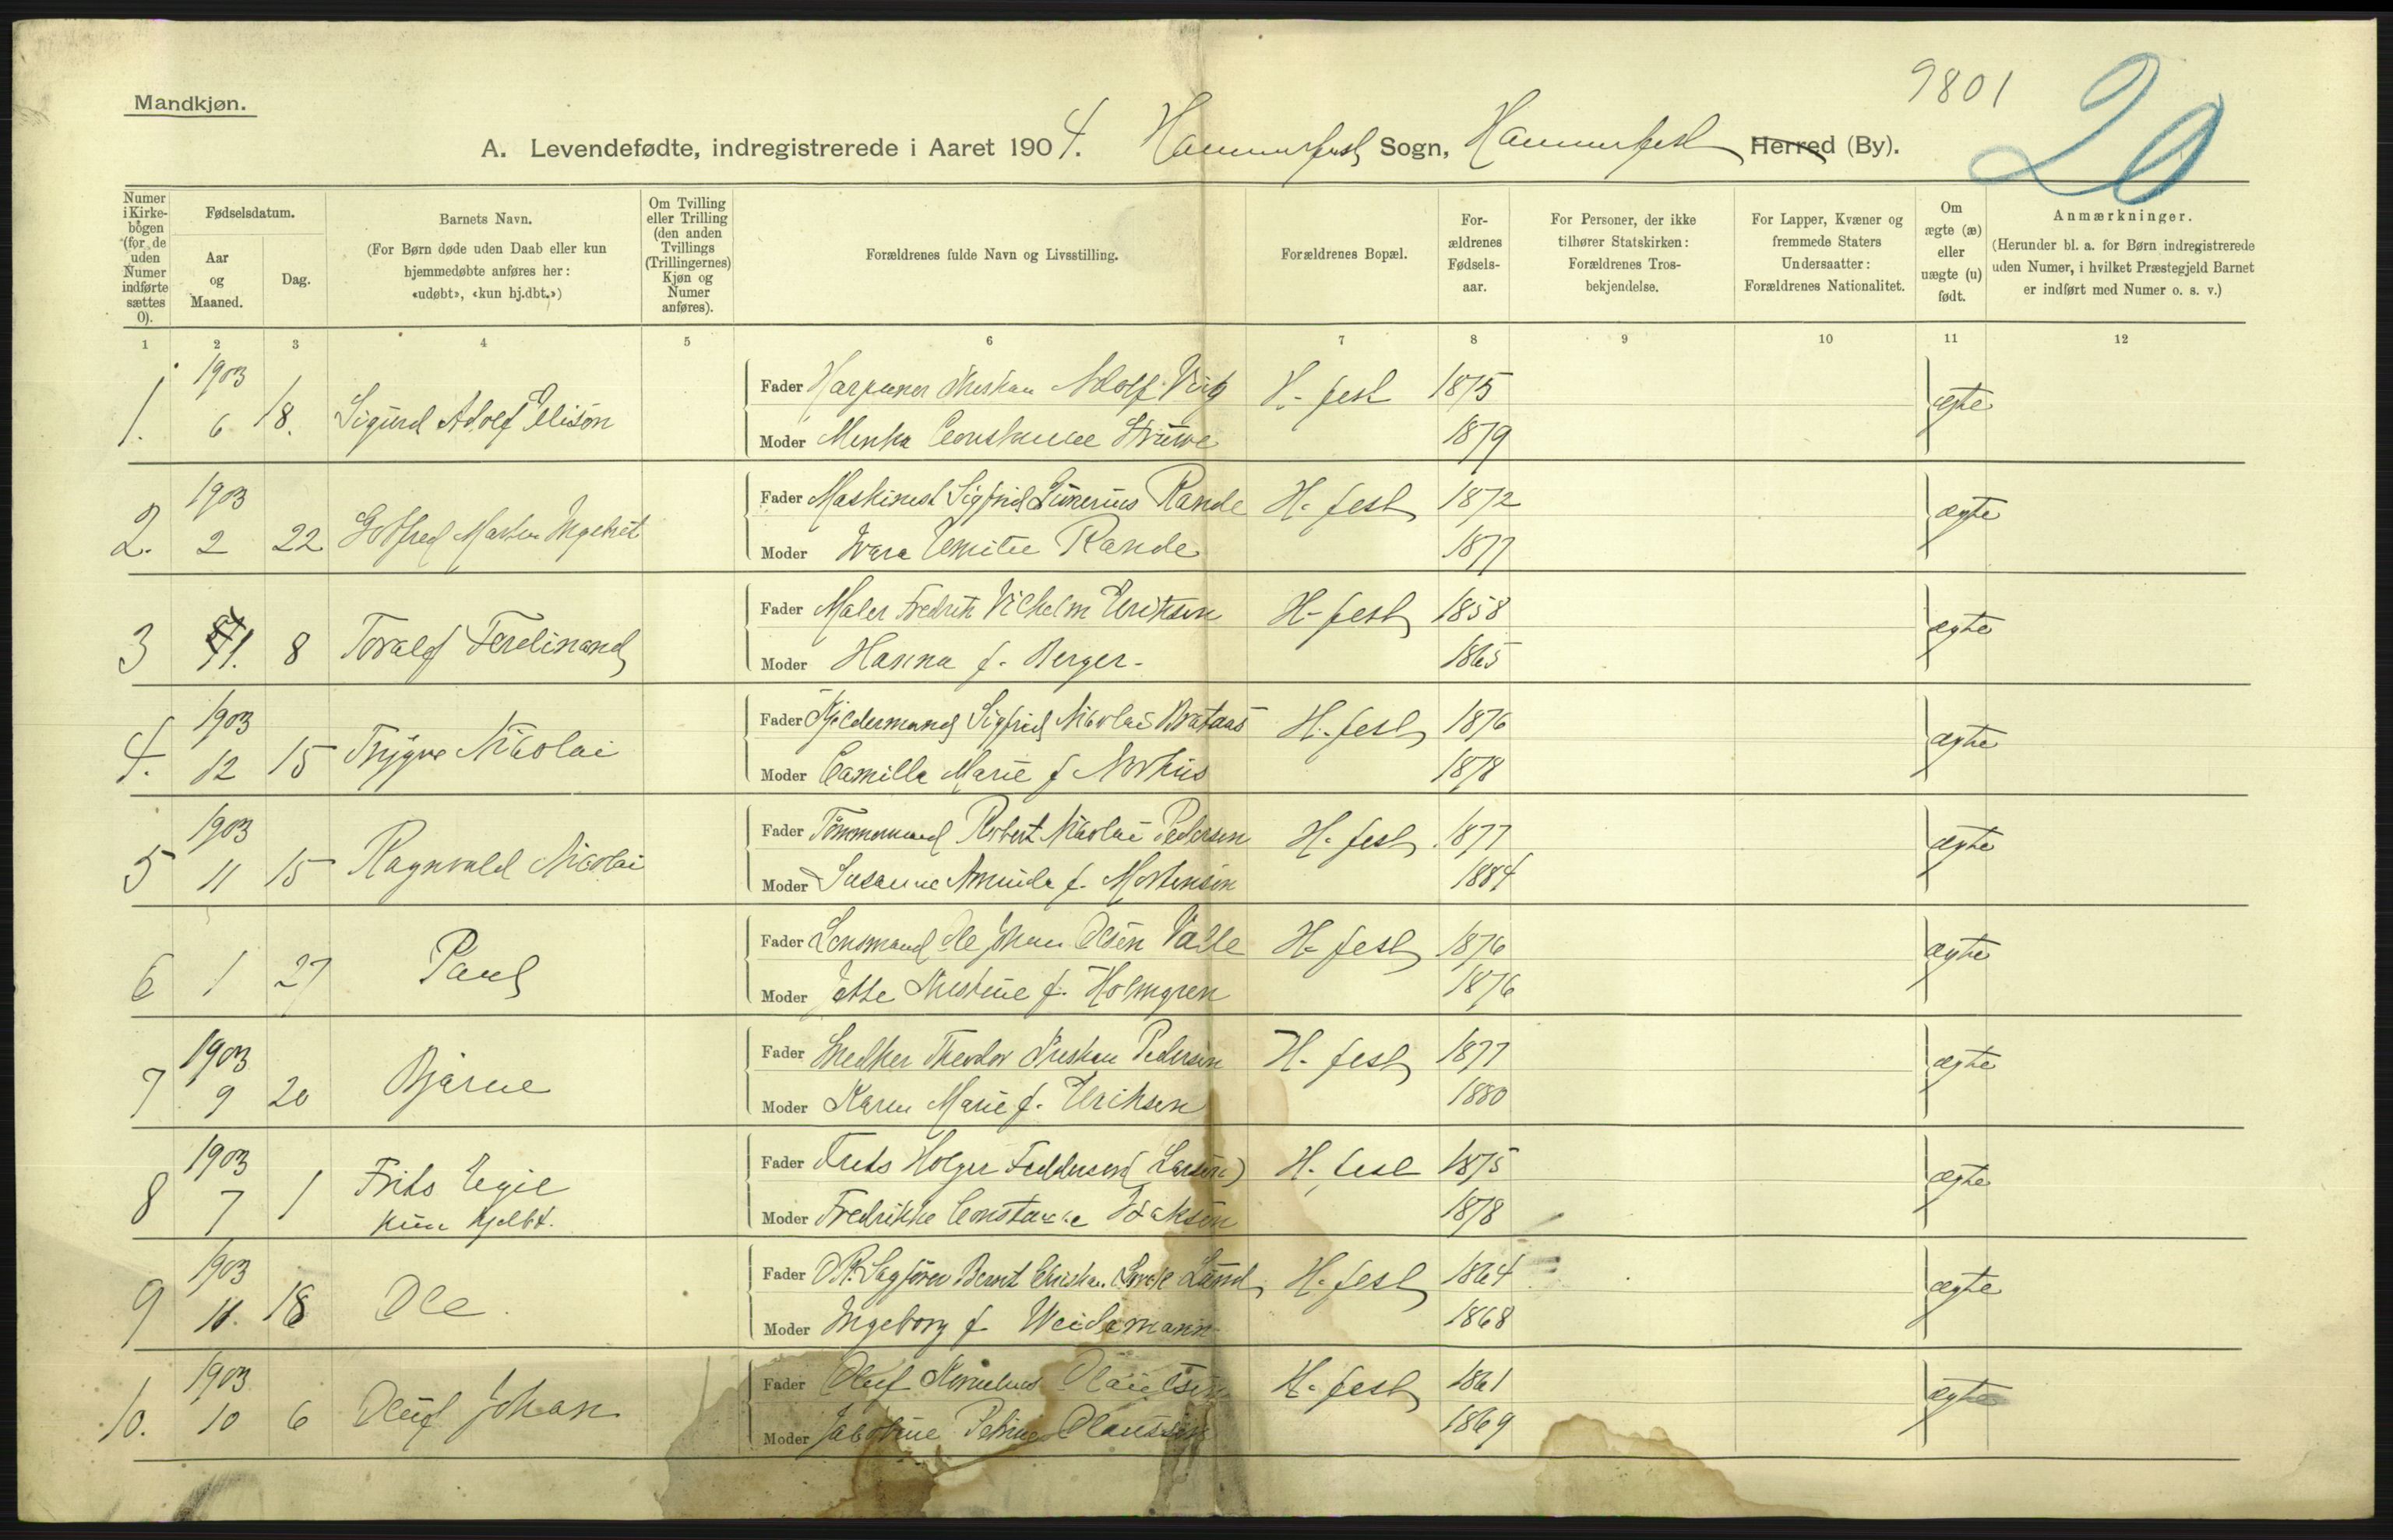 9801
20
Mandkjøn.
A. Levendefødte, indregistrerede i Aaret 1904. Hammerfest Sogn, Hammerfest Herred (By).
Numer i Kirkebogen (for de uden Numer indførte sættes 0).
Fødselsdatum.
Aar og Maaned.
Dag.
Barnets Navn.
(For Børn døde uden Daab eller kun hjemmedøbte anføres her: «udøbt», «kun hj.dbt.»)
Om Tvilling eller Trilling (den anden Tvillings (Trillingernes) Kjøn og Numer anføres).
Forældrenes fulde Navn og Livsstilling.
Forældrenes Bopæl.
Forældrenes Fødselsaar.
For Personer, der ikke tilhører Statskirken: Forældrenes Trosbekjendelse.
For Lapper, Kvæner og fremmede Staters Undersaatter: Forældrenes Nationalitet.
Om ægte (æ) eller uægte (u) født.
Anmærkninger.
(Herunder bl. a. for Børn indregistrerede uden Numer, i hvilket Præstegjeld Barnet er indført med Numer o. s. v.)
1 2 3 4 5 6 7 8 9 10 11 12
1. 1903 6 18. Sigurd Adolf Elison
Fader Harpuner Kristian Adolf H-fest 1875 ægte
Moder Minka Constance Struwe 1879
2. 1903 2 22 Gotfred Martin Ingebret
Fader Maskinist Sigfrid Rande H-fest 1872 ægte
Moder Emilie Rande 1877
3 11. 8 Toralf Ferdinand
Fader Maler Fredrik Vilhelm Eriksen H-fest 1858 ægte
Moder Hanna f. Berger 1865
4. 1903 12 15 Trygve Nikolai
Fader Sigfrid Nikolai Brataas H-fest 1876 ægte
Moder Camilla Marie f Norhus 1878
5 1903 11 15 Ragnvald Nicolai
Fader Tømmermand Robert Nicolai Pedersen H-fest 1877 ægte
Moder Susanne Amanda f. Mortensen 1884
6 1 27 Paul
Fader Lensmand Ole Johan Olsen Valle H-fest 1876 ægte
Moder Jette Kristine f. Holmgren 1876
7 1903 9 20 Bjarne
Fader Snedker Theodor Kristian Pedersen H-fest 1877 ægte
Moder Karen Marie f. Eriksen 1880
8 1903 7 1 Frits Egil
kun hjdbt.
Fader Frits Holger Feddersen (Larsen) H-fest 1875 ægte
Moder Fredrikke Constance Isaksen 1878
9 1903 11. 18 Ole
Fader O.R.Sagfører Bernt Christian Lund H-fest 1864 ægte
Moder Ingeborg f Weidemann 1868
10. 1903 10 6 Oluf Johan
Fader Oluf Kornelius Olaussen H-fest 1861 ægte
Moder Jacobine Petrine Olaussen 1869